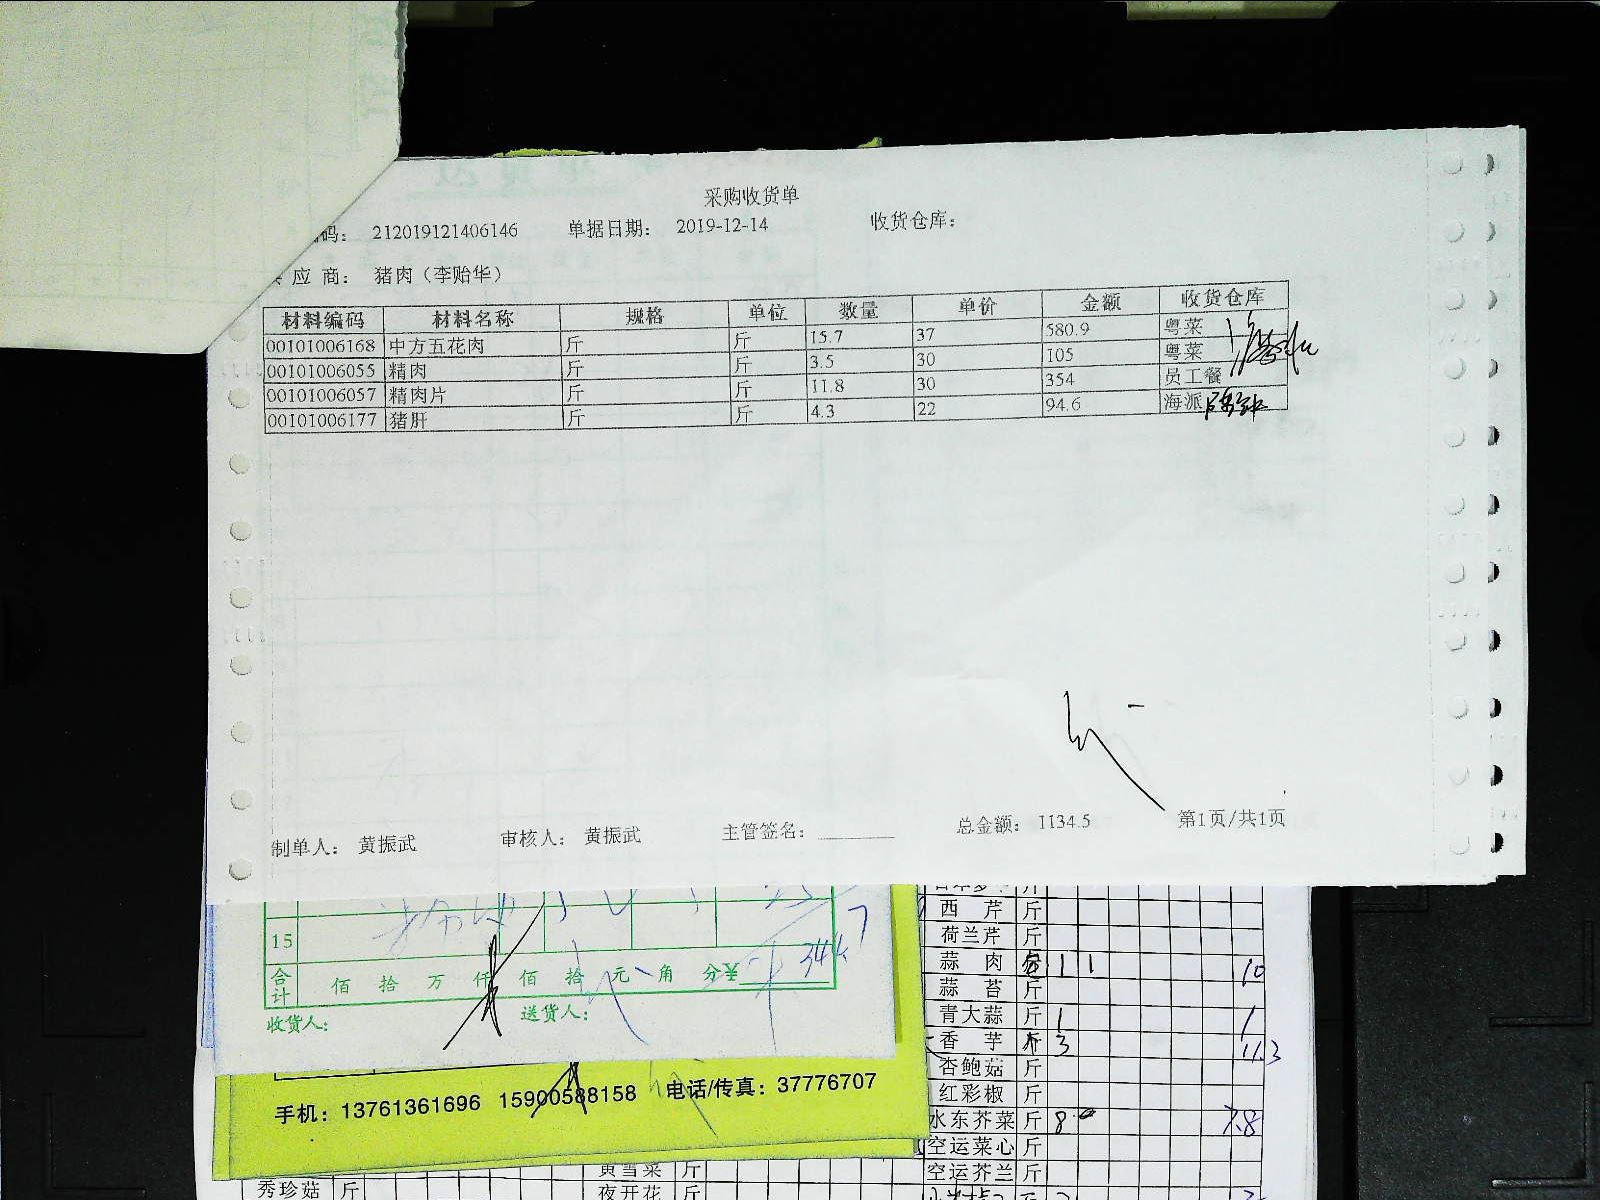 采购收货单
码： 212019121406146 单据日期： 2019-12-14 收货仓库：
应 商： 猪肉（李贻华）
材料编码 材料名称 规格 单位 数量 单价 金额 收货仓库
00101006168 中方五花肉 斤 斤 15.7 37 580.9 粤菜
00101006055 精肉 斤 斤 3.5 30 105 粤菜
00101006057 精肉片 斤 斤 11.8 30 354 员工餐
00101006177 猪肝 斤 斤 4.3 22 94.6 海派
制单人： 黄振武 审核人： 黄振武 主管签名： 总金额： 1134.5 第1页/共1页
15
合计 佰 拾 万 仟 佰 拾 元 角 分¥
收货人： 送货人：
手机：13761361696 15900588158 电话/传真：37776707
西 芹 斤
荷兰芹 斤
蒜 肉 1 1 10
蒜 苔 斤
青大蒜 斤 1 1
香 芋 斤 3 11.3
杏鲍菇 斤
红彩椒 斤
水东芥菜 斤 8 7.8
空运菜心 斤
空运芥兰 斤
黄雪菜 斤
秀珍菇 斤 夜开花 斤